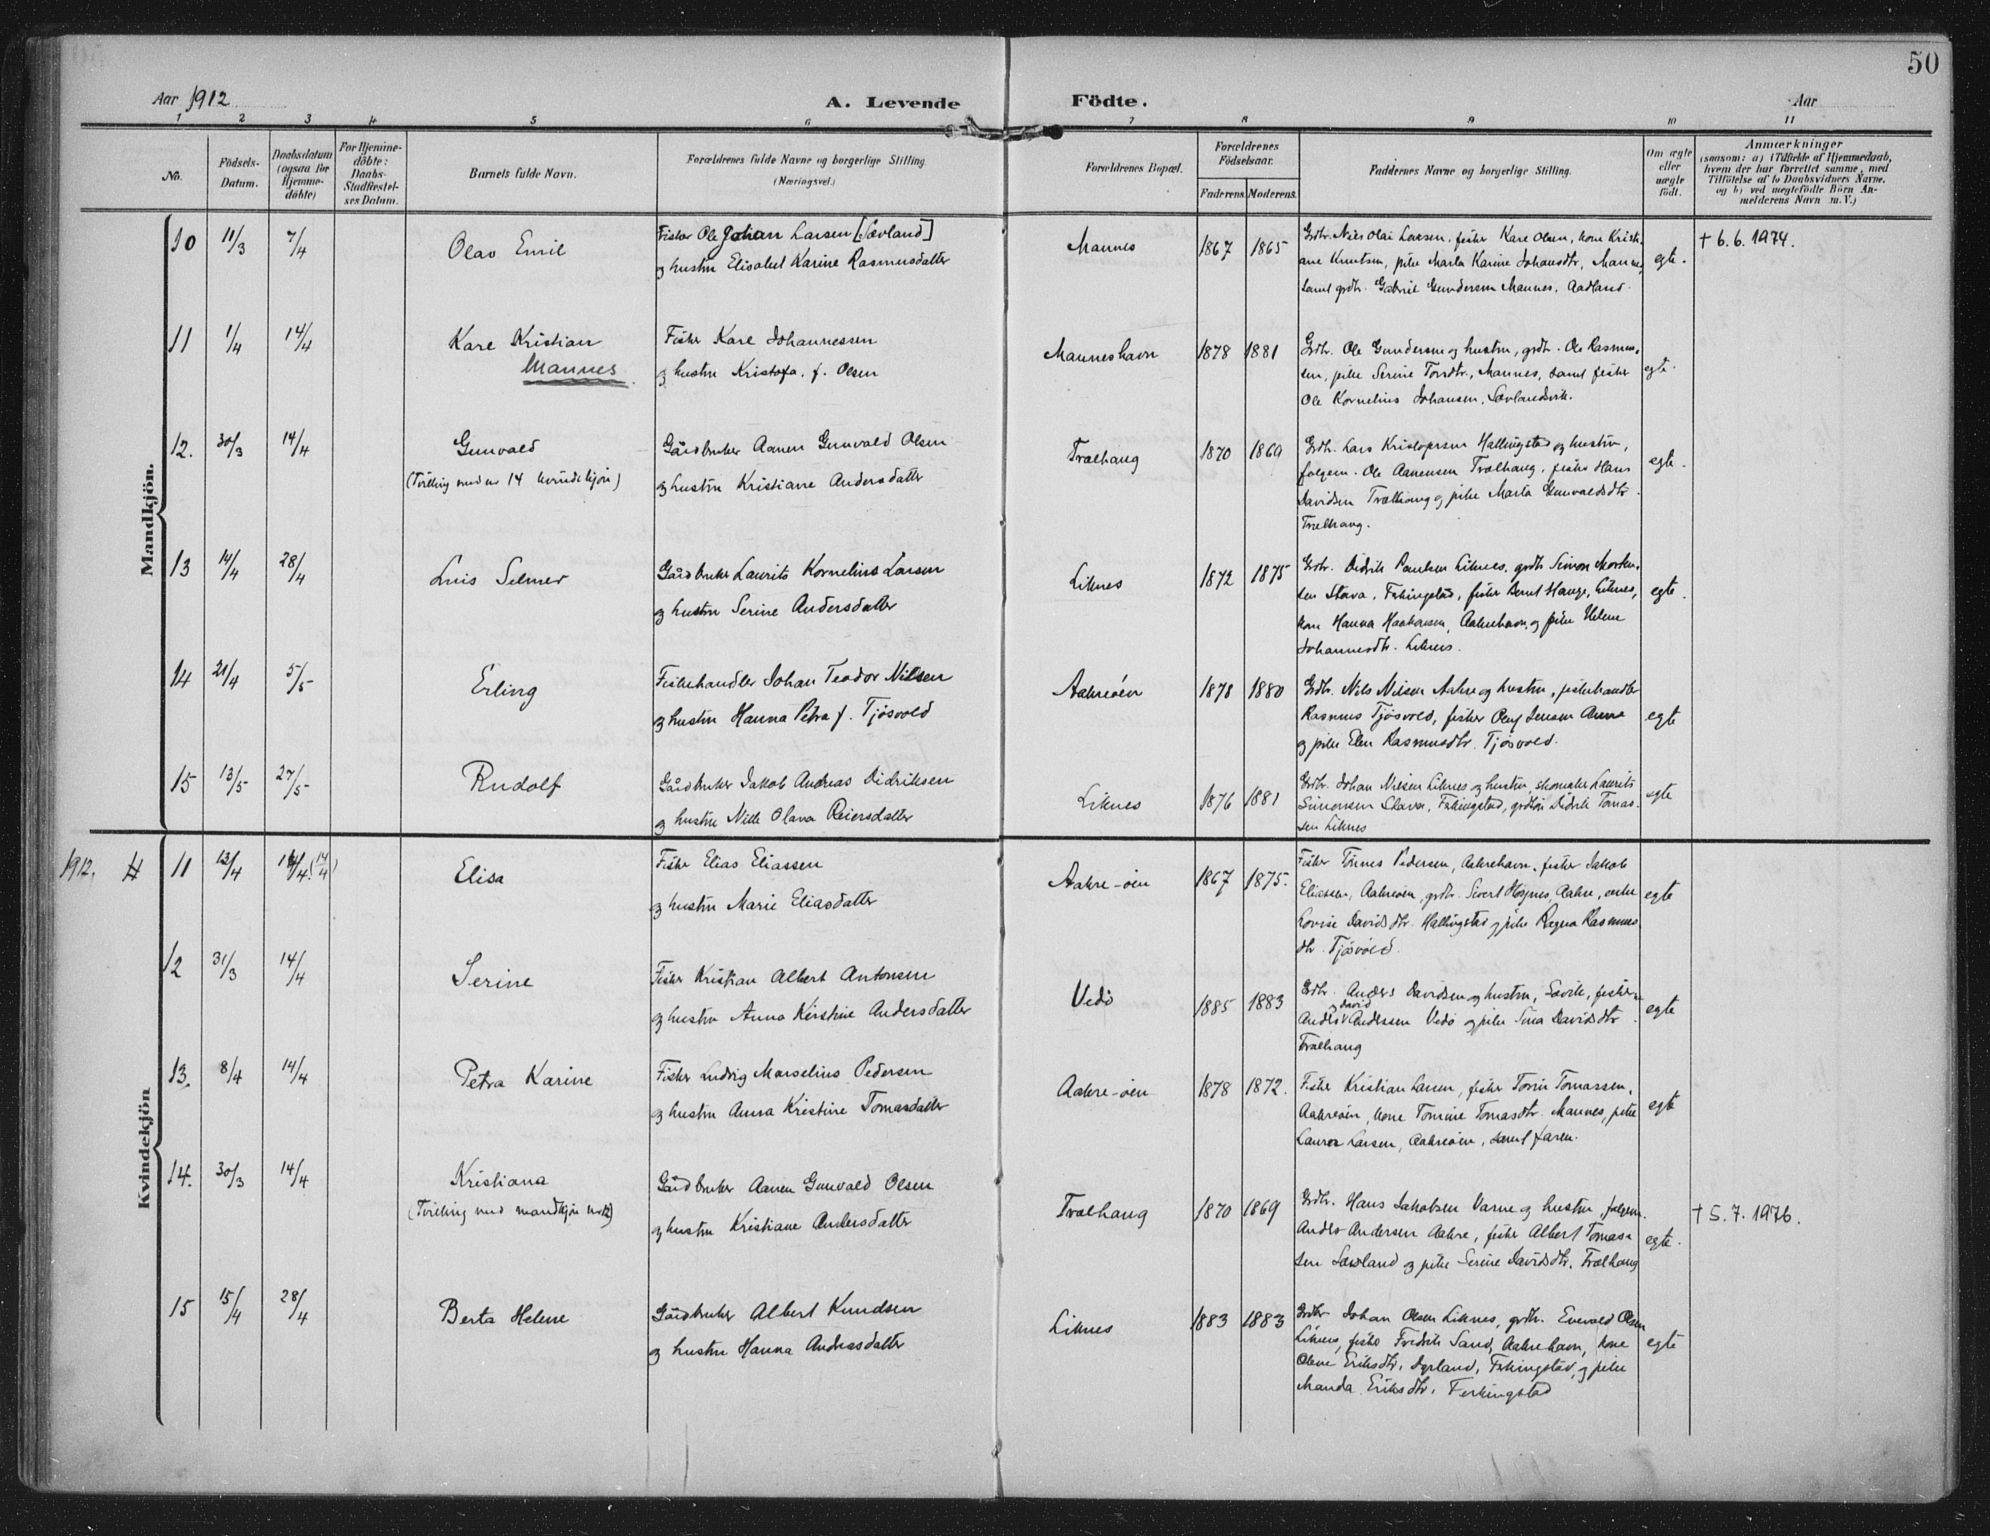 50
Aar 1912
A. Levende Födte.
Aar
1 2 3 4 5 6 7 8 9 10 11
No.
Födsels-
Datum.
Daabsdatum
(ogsaa for
Hjemme-
döbte)
For Hjemme-
döbte:
Daabs-
Stadfæstel-
ses Datum.
Barnets fulde Navn.
Forældrenes fulde Navne og borgerlige Stilling.
(Næringsvei.)
Forældrenes Bopæl.
Forældrenes
Födselsaar.
Faderens. Moderens.
Faddernes Navne og borgerlige Stilling.
Om ægte
eller
uægte
födt.
Anmærkninger
(saasom: a) i Tilfælde af Hjemmedaab,
hvem der har forrettet samme, med
Tilföielse af to Daabsvidners Navne.
og b) ved uegtefödte Börn An-
melderens Navn m. V.)
Mandkjön.
10 11/3 7/4 Olav Emil
Fisker Ole Johan Larsen [Sævland]
og hustru Elisabet Karine Rasmusdatter
Mannes 1867 1865
Grdbr. Nicolai Larsen, fisker Kare Olsen, kone Kristi-
ane Knutsen, pike Marta Karine Johansdtr, Mannes,
samt grdbr. Gabriel Gundersen Mannes, Aadland.
egte.
† 6.6.1974.
11 1/4 14/4 Kare Kristian
Mannes
Fisker Kare Johannessen
og hustru Kristofa f. Olsen
Manneshavn 1878 1881
Grdbr. Ole Gundersen og hustru, grdbr. Ole Rasmus-
sen, pike Serine Torsdtr., Mannes, samt fisker
Ole Kornelius Johansen, Sævlandsvik.
egte.
12. 30/3 14/4 Gunvald
(Tvilling med nr 14 kvindekjön)
Gårdbruker Aanen Gunvald Olsen
og hustru Kristiane Andersdatter
Trælhaug 1870 1869
Grdbr. Lars Kristofersen Hallingstad og hustru,
følgem. Ole Aanensen Trælhaug, fisker Hans
Davidsen Trælhaug og pike Marta Gunvaldsdtr
Trælhaug.
egte.
13 14/4 28/4 Luis Selmer
Gårdbruker Laurits Kornelius Larsen
og hustru Serine Andersdatter
Liknes 1872 1875
Grdbr. Didrik Paulsen Liknes, grdbr Simon Morten-
sen Stava, Ferkingstad, fisker Bernt Hauge, Liknes,
kone Hanna Haakonsen, Aakrehavn, og pike Helene
Johannesdtr. Liknes.
egte.
14 21/4 5/5 Erling
Fiskehandler Johan Teodor Nilsen
og hustru Hanna Petra f. Tjøsvold
Aakreøen 1878 1880
Grdbr. Nils Nilsen Aakre og hustru, fiskehandler
Rasmus Tjøsvold, fisker Oluf Jensen
og pike Elen Rasmusdtr. Tjøsvold.
egte
15 13/5 27/5 Rudolf
Gårdbruker Jakob Andreas Didriksen
og hustru Nille Olava Reiersdatter
Liknes 1876 1881
Grdbr. Johan Nilsen Liknes og hustru, skomaker Laurits
Simonsen Stava, Ferkingstad, grdbr Didrik Tomas-
sen Liknes
egte
1912.
Kvindekjön
11 13/4 14/4 (14/4) Elisa
Fisker Elias Eliassen
og hustru Marie Eliasdatter
Aakre-øen 1867 1875.
Fisker Tönnes Pedersen, Aakrehavn, fisker Jakob
Eliassen, Aakreøen, grdbr. Sivert Høynes, Aakre, enke
Lovise Davidsdtr. Hallingstad og pike Ragna Rasmus-
dtr. Tjøsvold.
egte
12 31/3 14/4 Serine
Fisker Kristian Albert Antonsen
og hustru Anna Kirstine Andersdatter
Vedö 1885 1883
Grdbr. Anders Davidsen og hustru, Søvik, fisker
og David
Anders Anderssen Vedø og pike Sina Davidsdtr
Trælhaug
egte
13. 8/4 14/4 Petra Karine
Fisker Ludvig Marselius Pedersen
og hustru Anna Kristine Tomasdatter
Aakre-øen 1878 1872.
Fisker Kristian Larsen, fisker Tomassen,
Aakreøen, kone Tomine Tomasdtr. Mannes, pike
Laura Larsen, Aakreøen, samt faren.
egte
14. 30/3 14/4 Kristiana
(Tvilling med mandkjön nr 12)
Gårdbruker Aanen Gunvald Olsen
og hustru Kristiane Andersdatter
Trælhaug 1870 1869
Grdbr. Hans Jakobsen Varne og hustru, følgem.
Anders Andersen Aakre, fisker Albert Tomas-
sen Sævland og pike Serine Davidsdtr. Trælhaug
egte.
† 5.7.1976.
15 15/4 28/4 Berta Helene
Gårdbruker Albert Knudsen
og hustru Hanna Andreasdatter
Liknes 1883 1883
Grdbr Johan Olsen Liknes, grdbr. Enevald Olsen
Liknes, fisker Fredrik Sand, Aakrehavn, kone
Olene Eriksdtr. Ferkingstad, og pike
Manda Eriksdtr. Ferkingstad
egte